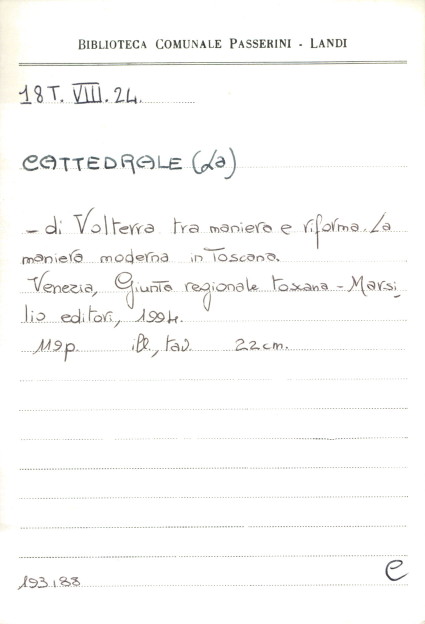 BIBLIOTECA COMUNALE PASSERINI - LANDI
18T. VIII. 24.
CATTEDRALE (La)
- di Volterra tra maniera e riforma. La
maniera moderna in Toscana.
Venezia, Giunta regionale toscana - Marsi
lio editori, 1994.
119p. ill., tav. 22cm.
193188
e